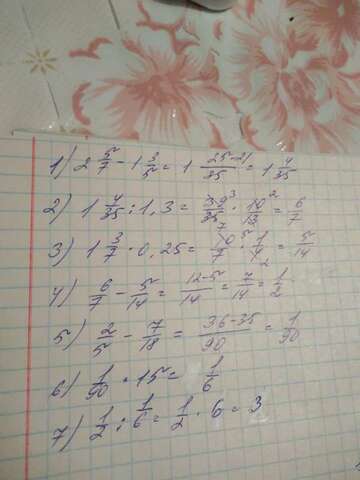 1) 2 5/7 - 1 3/5 = 1 25-21/35 = 1 4/35
2) 1 4/35 : 1,3 = 39/35 · 10/13 = 6/7
3) 1 3/7 · 0,25 = 10/7 · 1/4 = 5/14
4) 6/7 - 5/14 = 12-5/14 = 7/14 = 1/2
5) 2/5 - 7/18 = 36-35/90 = 1/90
6) 1/90 · 15 = 1/6
7) 1/2 : 1/6 = 1/2 · 6 = 3